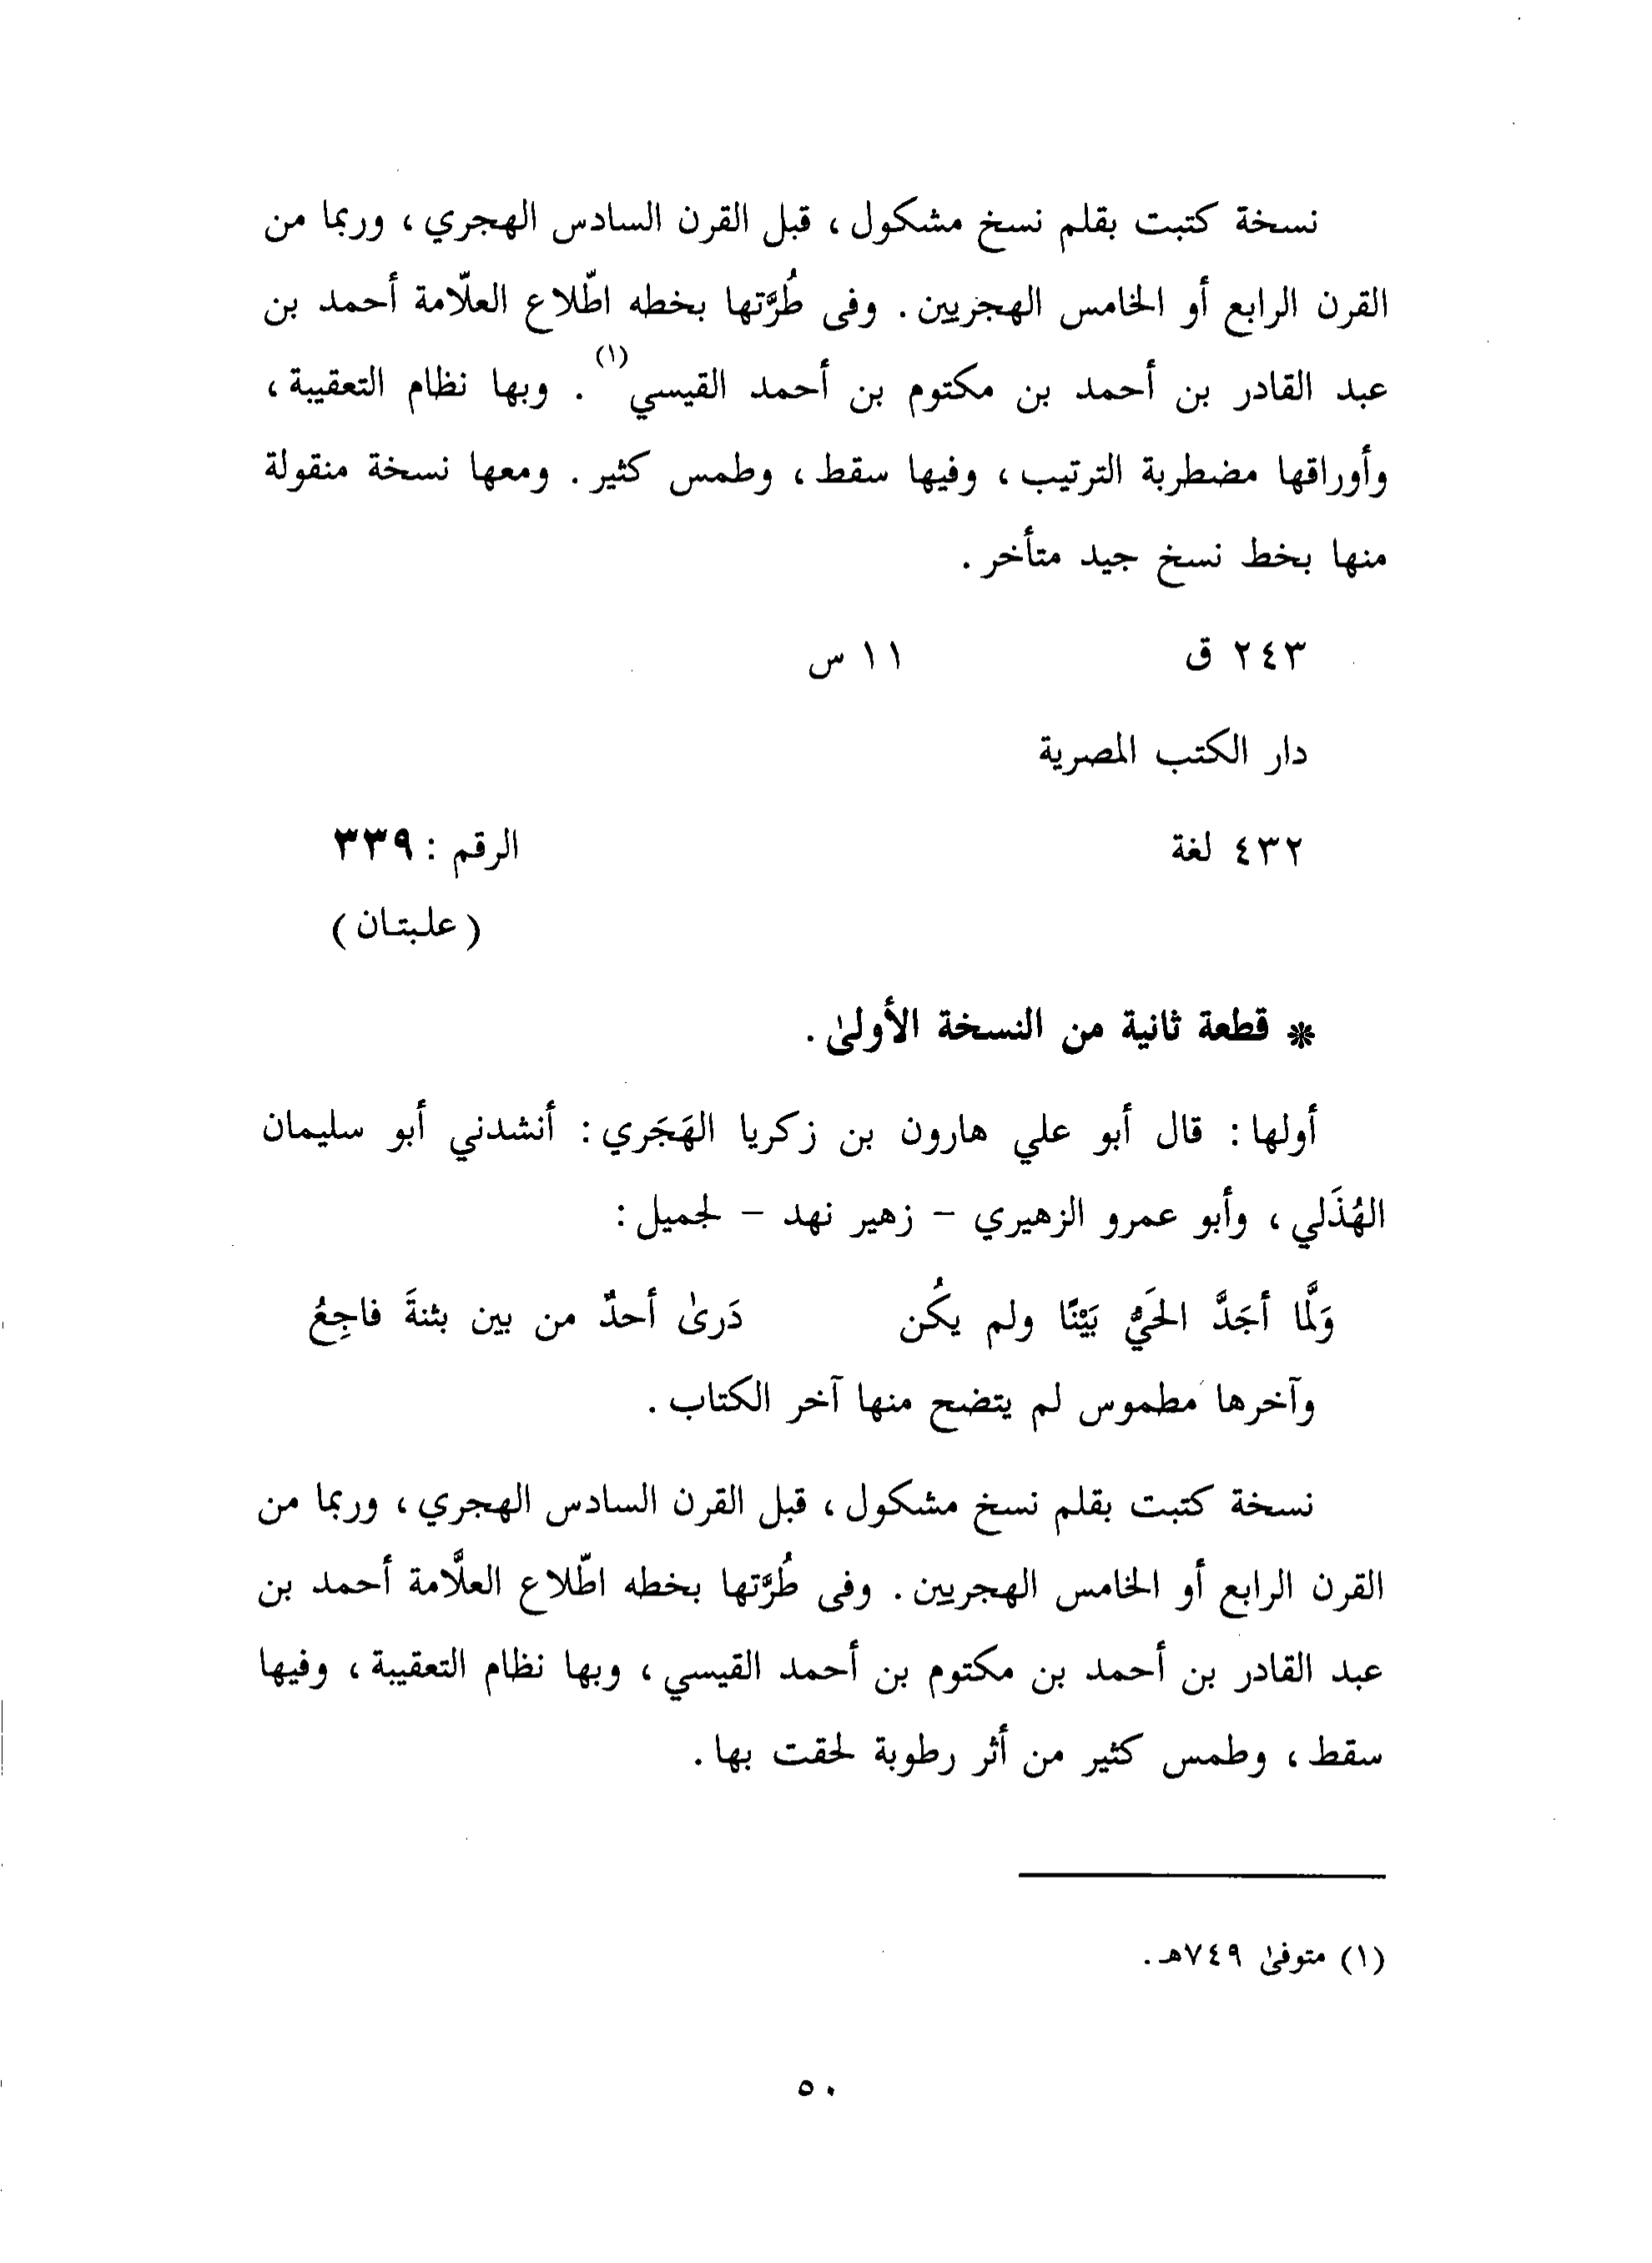 نسخة كتبت بقلم نسخ مشكول، قبل القرن السادس الهجري، وربما من
القرن الرابع أو الخامس الهجريين. وفى طُرَّتها بخطه اطّلاع العلّامة أحمد بن
عبد القادر بن أحمد بن مكتوم بن أحمد القيسي(١). وبها نظام التعقيبة،
وأوراقها مضطربة الترتيب، وفيها سقط، وطمس كثير. ومعها نسخة منقولة
منها بخط نسخ جيد متأخر.
٢٤٣ ق ١١ س
دار الكتب المصرية
٤٣٢ لغة الرقم: ٣٣٩
(علبتان)
* قطعة ثانية من النسخة الأولىٰ.
أولها: قال أبو علي هارون بن زكريا الهَجَري: أنشدني أبو سليمان
الهُذَلي، وأبو عمرو الزهيري - زهير نهد - لجميل:
وَلَّما أجَدَّ الحَيُّ بَيْنًا ولم يكُن دَرىٰ أحدٌ من بين بثنةَ فاجِعُ
وآخرها مطموس لم يتضح منها آخر الكتاب.
نسخة كتبت بقلم نسخ مشكول، قبل القرن السادس الهجري، وربما من
القرن الرابع أو الخامس الهجريين. وفى طُرَّتها بخطه اطّلاع العلَّامة أحمد بن
عبد القادر بن أحمد بن مكتوم بن أحمد القيسي، وبها نظام التعقيبة، وفيها
سقط، وطمس كثير من أثر رطوبة لحقت بها.
(١) متوفىٰ ٧٤٩هـ.
٥٠